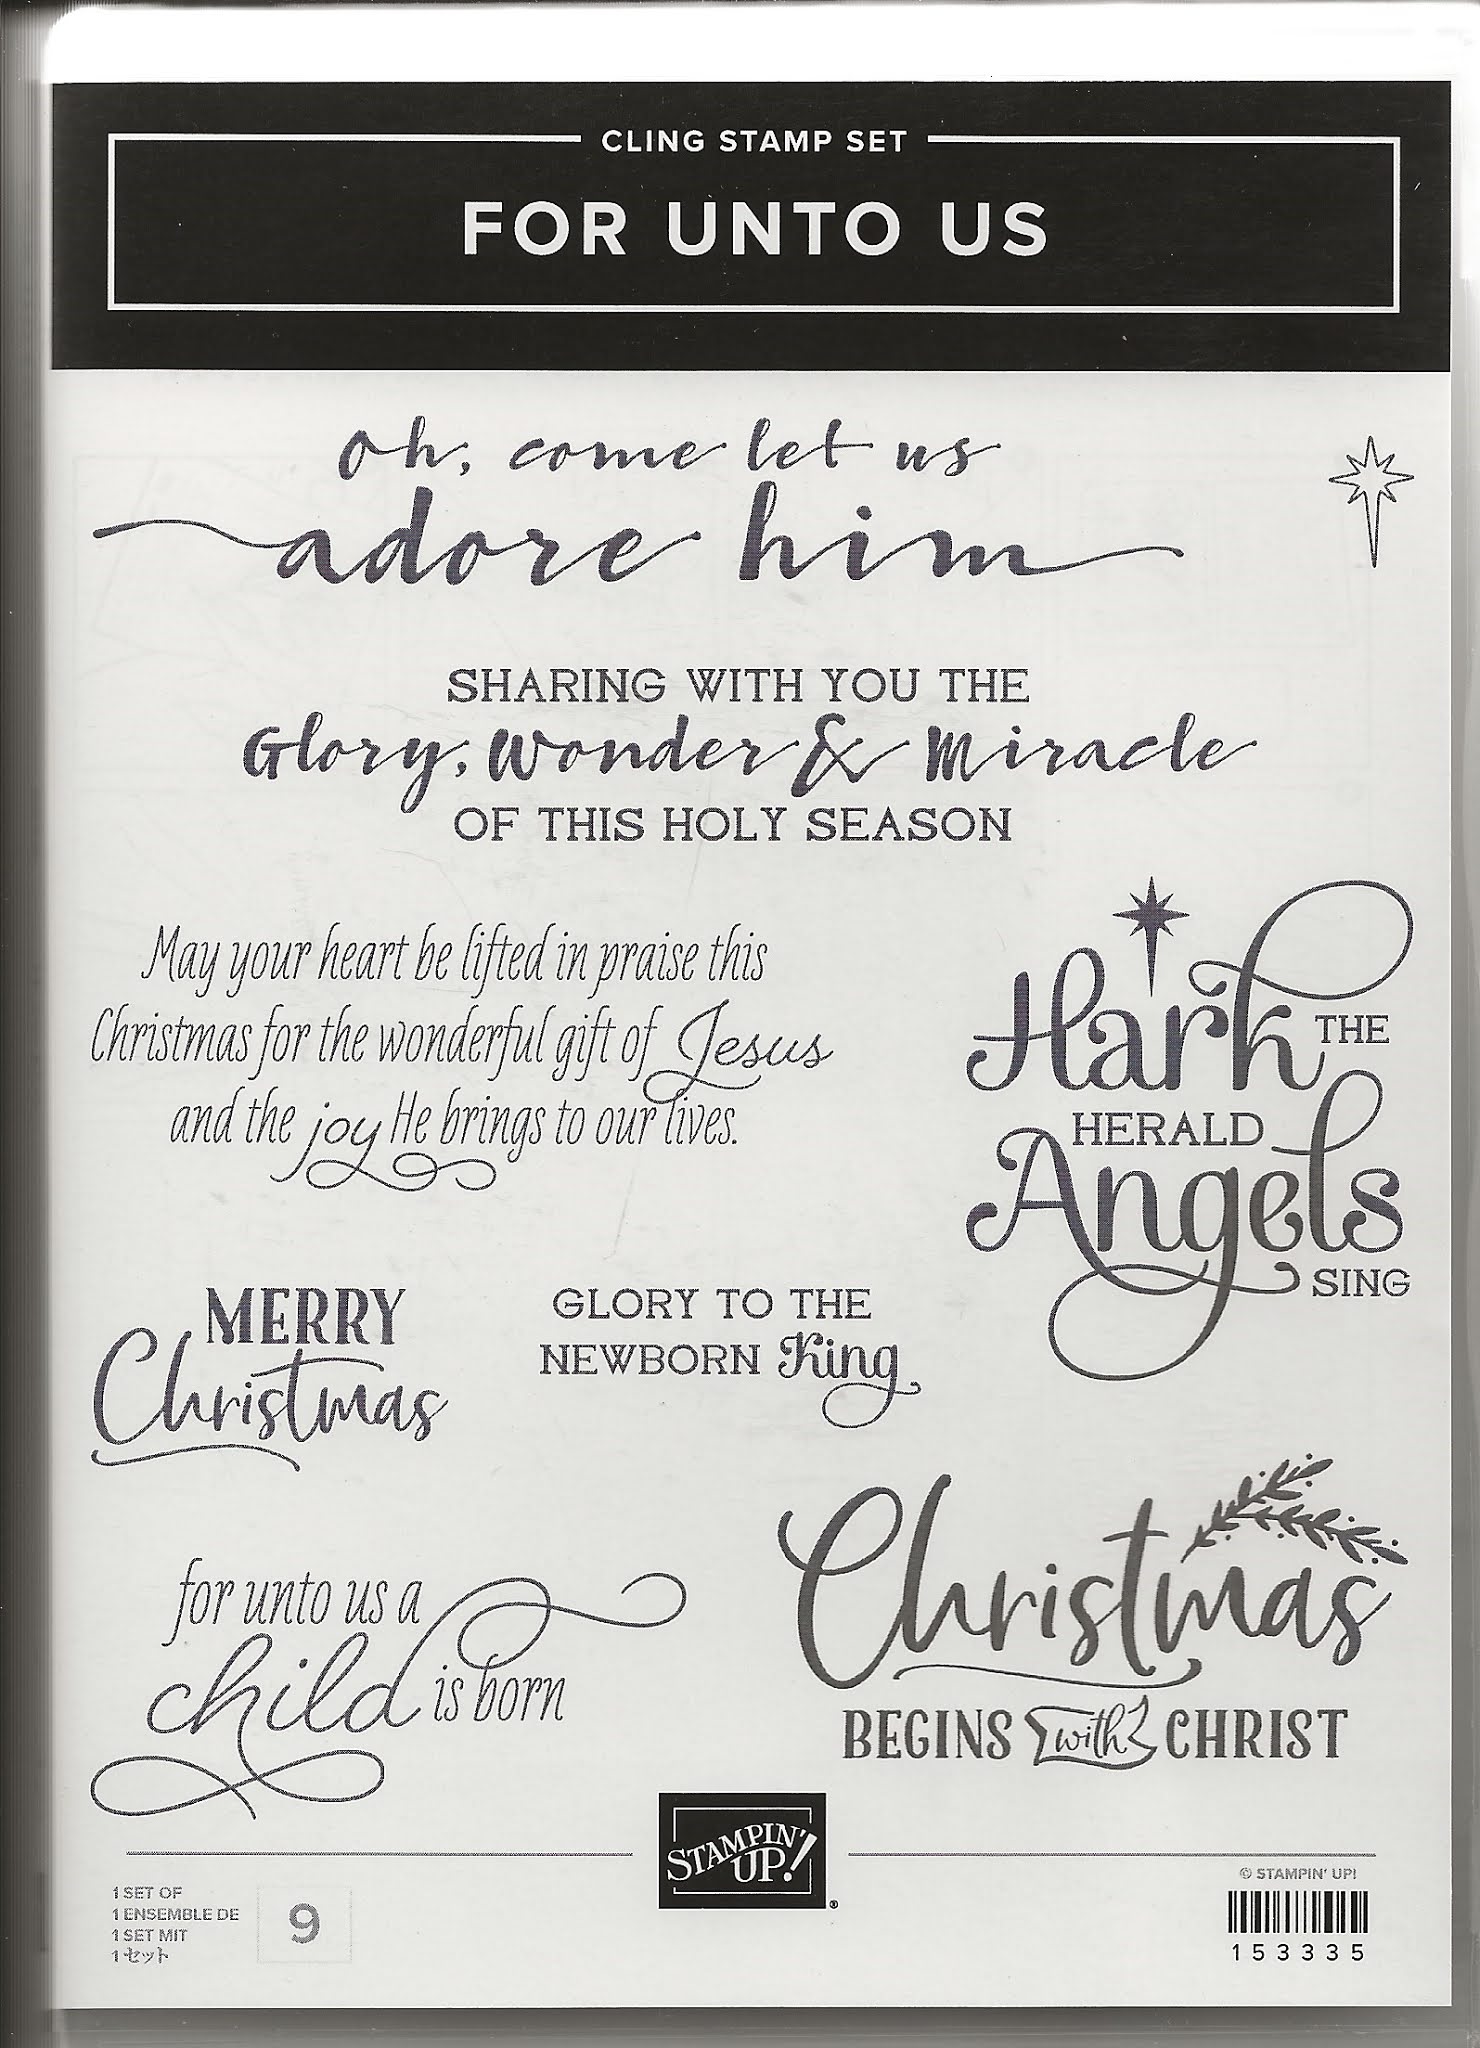 CLING STAMP SET
FOR UNTO US
oh, come let us
adore him
SHARING WITH YOU THE
Glory, Wonder & Miracle
OF THIS HOLY SEASON
May your heart be lifted in praise this
Christmas for the wonderful gift of Jesus
and the joy He brings to our lives.
Hark THE
HERALD
Angels
SING
MERRY
Christmas
GLORY TO THE
NEWBORN King
for unto us a
child is born
Christmas
BEGINS with CHRIST
STAMPIN'
UP!
®
1 SET OF
1 ENSEMBLE DE
1 SET MIT
1 セット
9
© STAMPIN' UP!
153335